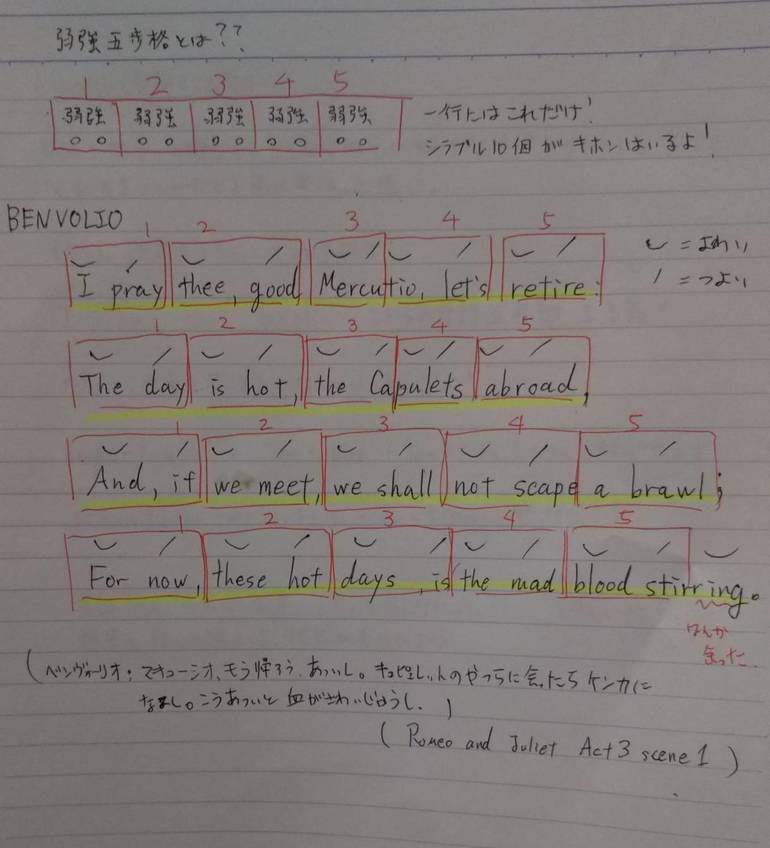 弱強五歩格とは??
1 2 3 4 5
弱強 弱強 弱強 弱強 弱強
一行にはこれだけ!
シラブル10個がキホンはいるよ!
BENVOLIO
1 2 3 4 5
I pray thee, good Mercutio, let's retire:
‿ = よわい
/ = つよい
1 2 3 4 5
The day is hot, the Capulets abroad,
1 2 3 4 5
And, if we meet, we shall not scape a brawl;
1 2 3 4 5
For now, these hot days, is the mad blood stirring.
なんか
余った
(ベンヴォーリオ: マキューシオ、もう帰ろう、あついし。キャピュレットのやつらに会ったらケンカに
なるし。こうあついと血がさわいじゃうし。)
(Romeo and Juliet Act 3 scene 1)